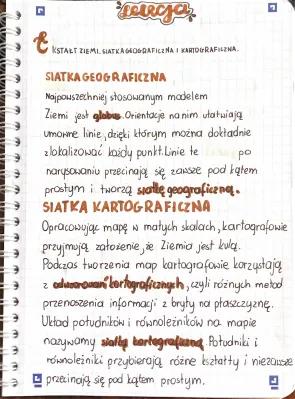 lekcja
t KSTAŁT ZIEMI. SIATKA GEOGRAFICZNA I KARTOGRAFICZNA.
SIATKA GEOGRAFICZNA
Najpowszechniej stosowanym modelem
Ziemi jest globus. Orientację na nim ułatwiają
umowne linie, dzięki którym można dokładnie
zlokalizować każdy punkt. Linie te po
narysowaniu przecinają się zawsze pod kątem
prostym i tworzą siatkę geograficzną.
SIATKA KARTOGRAFICZNA
Opracowując mapę w małych skalach, kartografowie
przyjmują założenie, że Ziemia jest kulą.
Podczas tworzenia map kartografowie korzystają
z odwzorowań kartograficznych, czyli różnych metod
przenoszenia informacji z bryły na płaszczyznę.
Układ południków i równoleżników na mapie
nazywamy siatką kartograficzną. Południki i
równoleżniki przybierają różne kształty i nie zawsze
przecinają się pod kątem prostym.